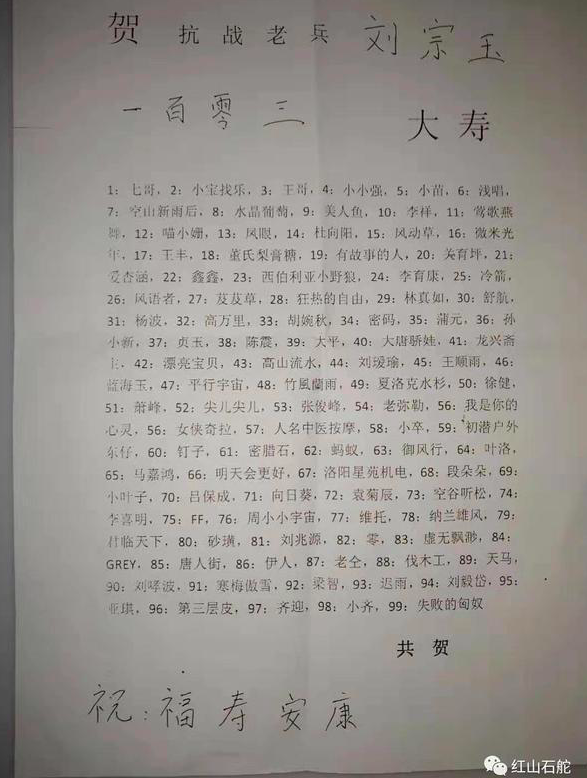 贺 抗战老兵 刘宗玉
一百零三 大寿
1：七哥，2：小宝找乐，3：王哥，4：小小强，5：小苗，6：浅唱，
7：空山新雨后，8：水晶葡萄，9：美人鱼，10：李样，11：莺歌燕
舞，12：喵小姗，13：凤眼，14：杜向阳，15：风动草，16：微米光
年，17：王丰，18：董氏梨膏糖，19：有故事的人，20：关育坪，21：
爱杏涵，22：鑫鑫，23：西伯利亚小野狼，24：李育康，25：冷箭，
26：风语者，27：芨芨草，28：狂热的自由，29：林真如，30：舒航，
31：杨波，32：高万里，33：胡婉秋，34：密码，35：蒲元，36：孙
小新，37：贞玉，38：陈震，39：大平，40：大唐骄娃，41：龙兴斋
主，42：漂亮宝贝，43：高山流水，44：刘瑗瑜，45：王顺雨，46：
蓝海玉，47：平行宇宙，48：竹風蘭雨，49：夏洛克水杉，50：徐健，
51：萧峰，52：尖儿尖儿，53：张俊峰，54：老弥勒，56：我是你的
心灵，56：女侠奇拉，57：人名中医按摩，58：小卒，59：初港户外
东仔，60：钉子，61：密腊石，62：蚂蚁，63：御风行，64：叶洛，
65：马嘉鸿，66：明天会更好，67：洛阳星苑机电，68：段朵朵，69：
小叶子，70：吕保成，71：向日葵，72：袁菊辰，73：空谷听松，74：
李喜明，75：FF，76：周小小宇宙，77：维托，78：纳兰雄风，79：
君临天下，80：砂璜，81：刘兆源，82：零，83：虚无飘渺，84：
GREY，85：唐人街，86：伊人，87：老仝，88：伐木工，89：天马，
90：刘哮波，91：寒梅傲雪，92：梁智，93：迟雨，94：刘毅岱，95：
亚琪，96：第三层皮，97：齐迎，98：小齐，99：失败的匈奴
共贺
祝：福寿安康
红山石舵